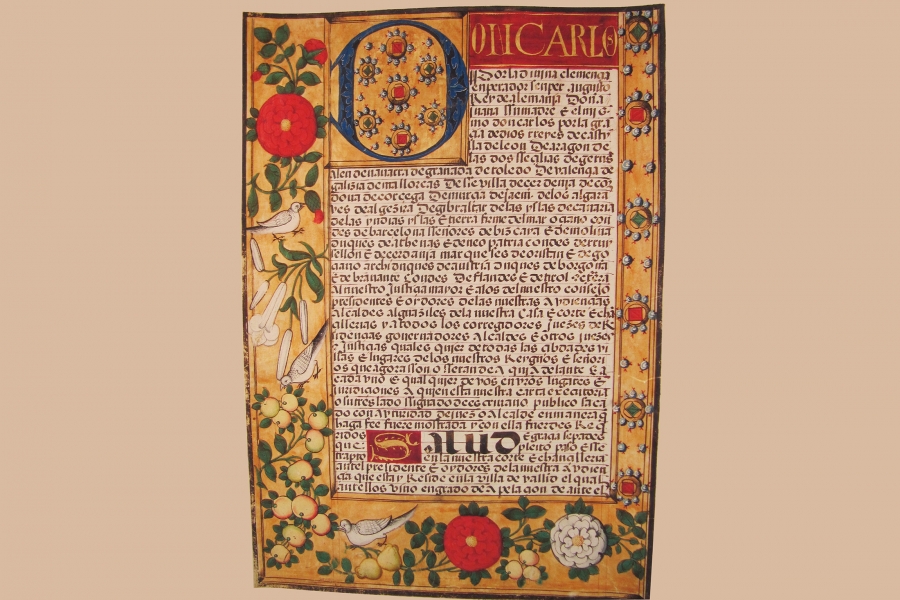 DON CARLOS
Por la divina clemençia
emperador semper augusto
Rey de alemaña Doña
juana su madre & el mismo
don carlos por la gra
çia de dios rreyes de casti
lla de leon De aragon de
las dos seçilias de gerus
alen de navarra de granada de toledo De valençia de
galizia de mallorcas De sevilla de cerdenia de cor
dova de corcega De murcia de jaen de los algar
ves de algezira De gibraltar de las yslas de canaria
de las yndias yslas & tierra firme del mar oçeano con
des de barcelona señores de bizcaya & de molina
Duques de athenas & de neopatria condes de rruy
sellon & de cerdania marqueses de oristan & de go
ciano archiduques de austria Duques de borgoña
& de bravante Condes De flandes & de tirol &
Al nuestro Justiçia mayor & a los del nuestro consejo
presidentes & oydores de las nuestras Audiençias
Alcaldes alguaziles de la nuestra Casa & corte & ch
ançillerias y a todos los corregidores Juezes de R
esidençias governadores Alcaldes & otros juezes
& Justiçias quales quier de todas las çibdades vi
llas & lugares de los nuestros Reygnos & señori
os que agora sson o sseran de Aqui A delante & a
cada uno & qual quier de vos en vros lugares &
juridiciones A quien esta nuestra carta executoria
o su treslado ssignado de escrivano publico saca
do con Avtoridad de juez o Alcalde en manera q
haga fee fuere mostrada y con ella fuerdes Re
ridos
que
Salud
& graçia Sepades
pleyto paso & se
trapto en la nuestra corte & chançilleria
ante el presidente & oydores de la nuestra Audien
çia que esta y Reside en la villa de vallid el qual
ante ellos vino en grado de Apelaçion de ante el